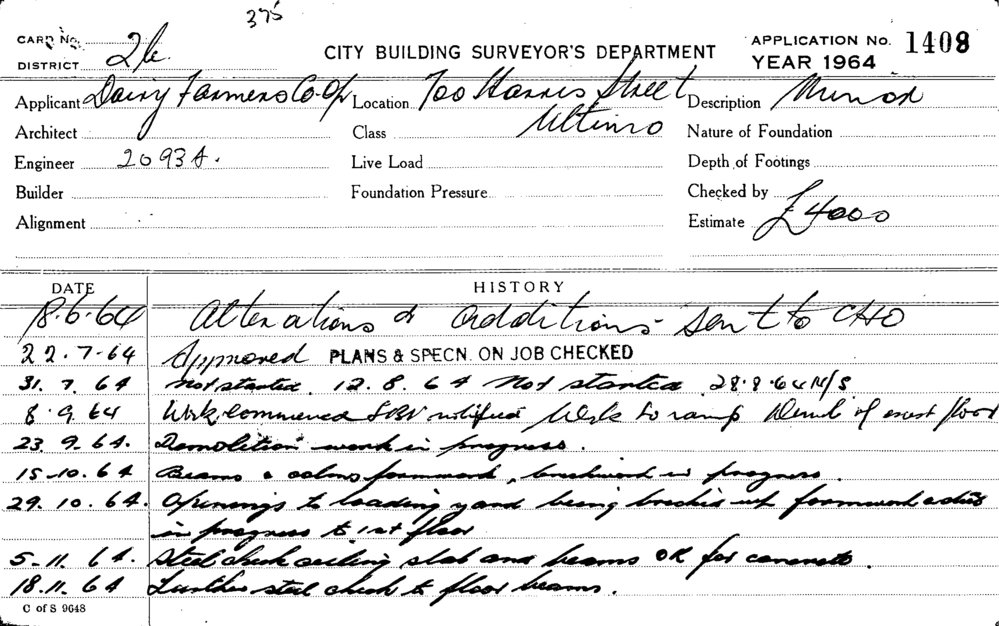 375
CARD No.
DISTRICT 26.
CITY BUILDING SURVEYOR'S DEPARTMENT
APPLICATION No. 1408
YEAR 1964
Applicant Dairy Farmers Co-Op Location 700 Harris Street Description Minor
Architect Class Ultimo Nature of Foundation
Engineer 2093A. Live Load Depth of Footings
Builder Foundation Pressure Checked by
Alignment Estimate £4000
DATE HISTORY
18.6.64 Alterations & additions - sent to CHO
22.7.64 Approved PLANS & SPECN. ON JOB CHECKED
31.7.64 Not started 12.8.64 Not started 28.8.64 N/S
8.9.64 Work commenced notified Work to ramp of exist floor
23.9.64. Demolition work in progress.
15.10.64 Beams & colms formwork, brickwork in progress
29.10.64. Openings to loading yard being bricked up formwork
in progress to 1st floor
5.11.64. Steel check ceiling slab and beams OK for concrete.
18.11.64 Further steel check to floor beams.
C of S 9648